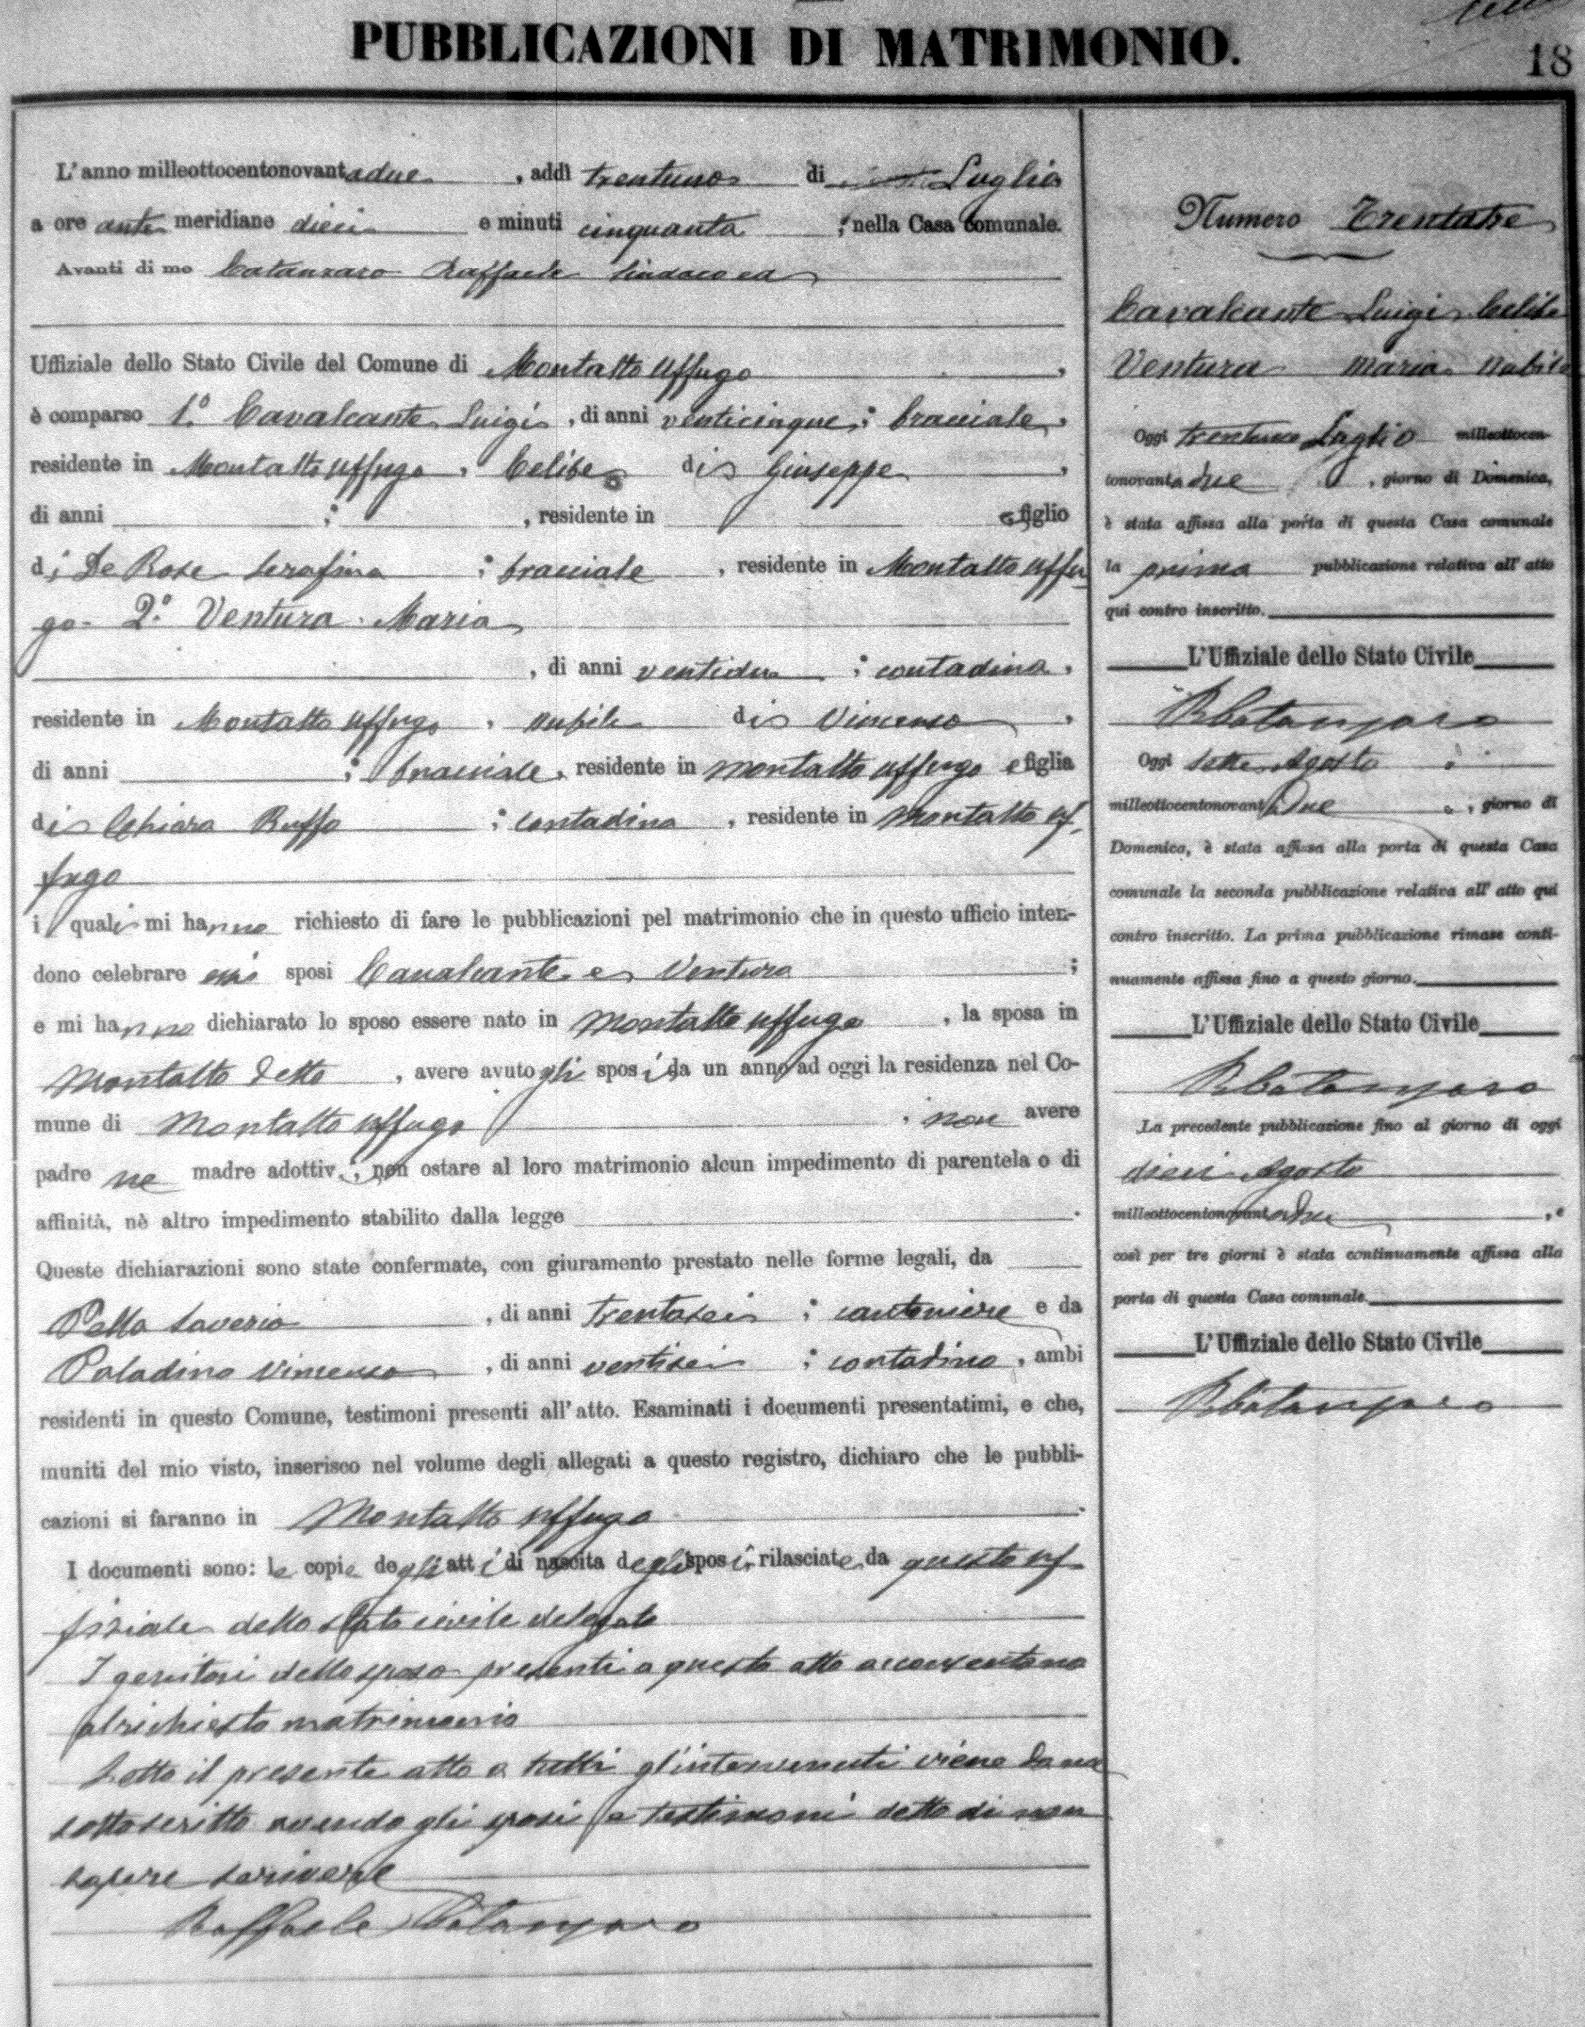 PUBBLICAZIONI DI MATRIMONIO.
18
L'anno milleottocentonovantadue, addì trentuno di Luglio
a ore anti meridiane dieci e minuti cinquanta, nella Casa comunale.
Avanti di me Catanzaro Raffaele Sindaco ed
Uffiziale dello Stato Civile del Comune di Montalto Uffugo,
è comparso 1.° Cavalcante Luigi, di anni venticinque; bracciale,
residente in Montalto Uffugo, Celibe di Giuseppe,
di anni ; , residente in e figlio
di De Rose Serafina; bracciale, residente in Montalto Uffu
go. 2.° Ventura Maria
, di anni ventidue; contadina,
residente in Montalto Uffugo, nubile di Vincenzo,
di anni ; bracciale, residente in Montalto Uffugo e figlia
di Chiara Ruffo; contadina, residente in Montalto Uf-
fugo
i quali mi hanno richiesto di fare le pubblicazioni pel matrimonio che in questo ufficio inten-
dono celebrare essi sposi Cavalcante e Ventura;
e mi hanno dichiarato lo sposo essere nato in Montalto Uffugo, la sposa in
Montalto detto, avere avuto gli sposi da un anno ad oggi la residenza nel Co-
mune di Montalto Uffugo, non avere
padre ne madre adottiv ; non ostare al loro matrimonio alcun impedimento di parentela o di
affinità, nè altro impedimento stabilito dalla legge.
Queste dichiarazioni sono state confermate, con giuramento prestato nelle forme legali, da
Pella Saverio, di anni trentasei; cantoniere e da
Paladino Vincenzo, di anni ventisei; contadino, ambi
residenti in questo Comune, testimoni presenti all'atto. Esaminati i documenti presentatimi, e che,
muniti del mio visto, inserisco nel volume degli allegati a questo registro, dichiaro che le pubbli-
cazioni si faranno in Montalto Uffugo.
I documenti sono: le copie degli atti di nascita degli sposi, rilasciate da questo uf
fiziale dello stato civile delegato
I genitori dello sposo presenti a questo atto acconsentono
al richiesto matrimonio
Letto il presente atto a tutti gl'intervenuti viene da me
sottoscritto avendo gli sposi e testimoni detto di non
sapere scrivere
Raffaele Catanzaro
Numero Trentatre
Cavalcante Luigi Celibe
Ventura Maria Nubile
Oggi trentuno Luglio milleottocen-
tonovantadue, giorno di Domenica,
è stata affissa alla porta di questa Casa comunale
la prima pubblicazione relativa all'atto
qui contro inscritto.
L'Uffiziale dello Stato Civile
RCatanzaro
Oggi sette Agosto
milleottocentonovantadue, giorno di
Domenica, è stata affissa alla porta di questa Casa
comunale la seconda pubblicazione relativa all'atto qui
contro inscritto. La prima pubblicazione rimase conti-
nuamente affissa fino a questo giorno.
L'Uffiziale dello Stato Civile
RCatanzaro
La precedente pubblicazione fino al giorno di oggi
dieci Agosto
milleottocentonovantadue, e
così per tre giorni è stata continuamente affissa alla
porta di questa Casa comunale.
L'Uffiziale dello Stato Civile
RCatanzaro